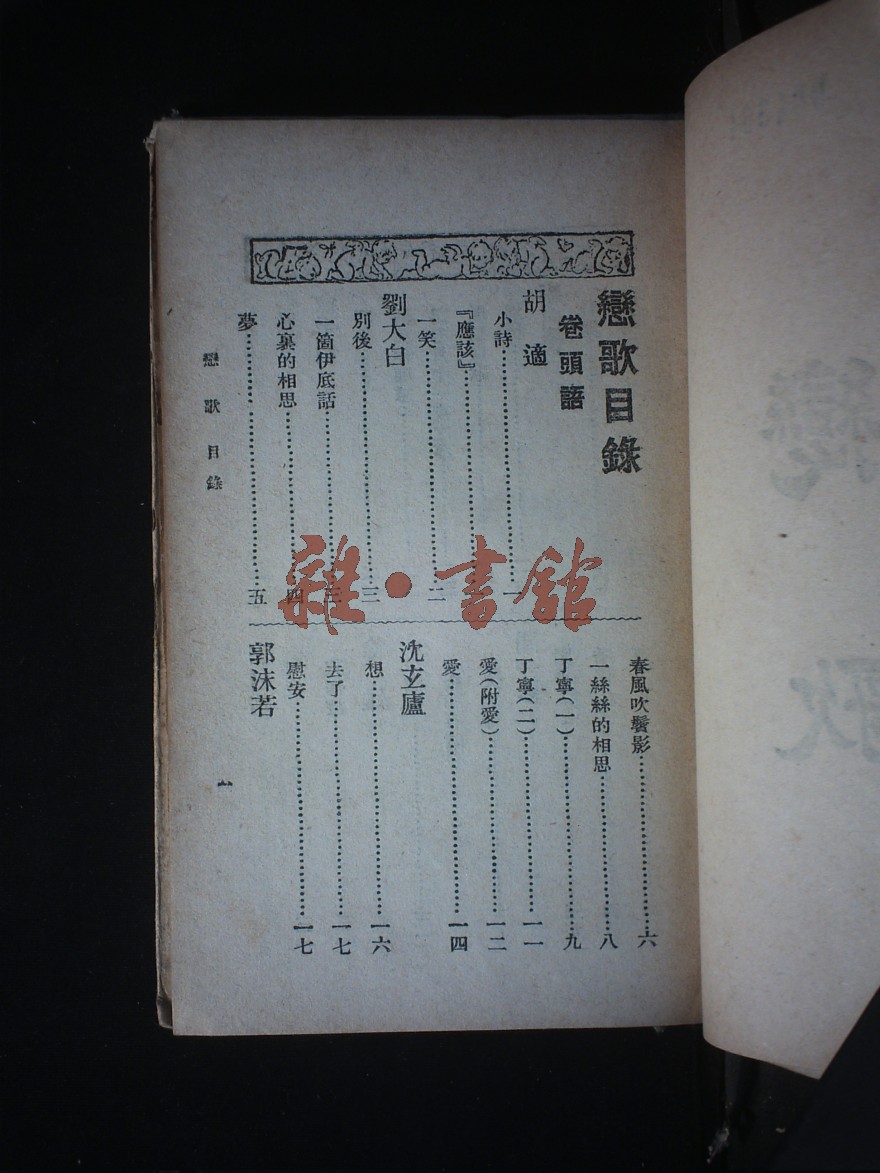 戀歌目錄
卷頭語
胡適
小詩……一
『應該』
一笑……二
劉大白
別後……三
一箇伊底話……三
心裏的相思……四
夢……五
春風吹鬢影……六
一絲絲的相思……八
丁寧(一)……九
丁寧(二)……一一
愛(附愛)……一二
愛……一四
沈玄廬
想……一六
去了……一七
慰安……一七
郭沫若
戀歌目錄
一
雜·書館